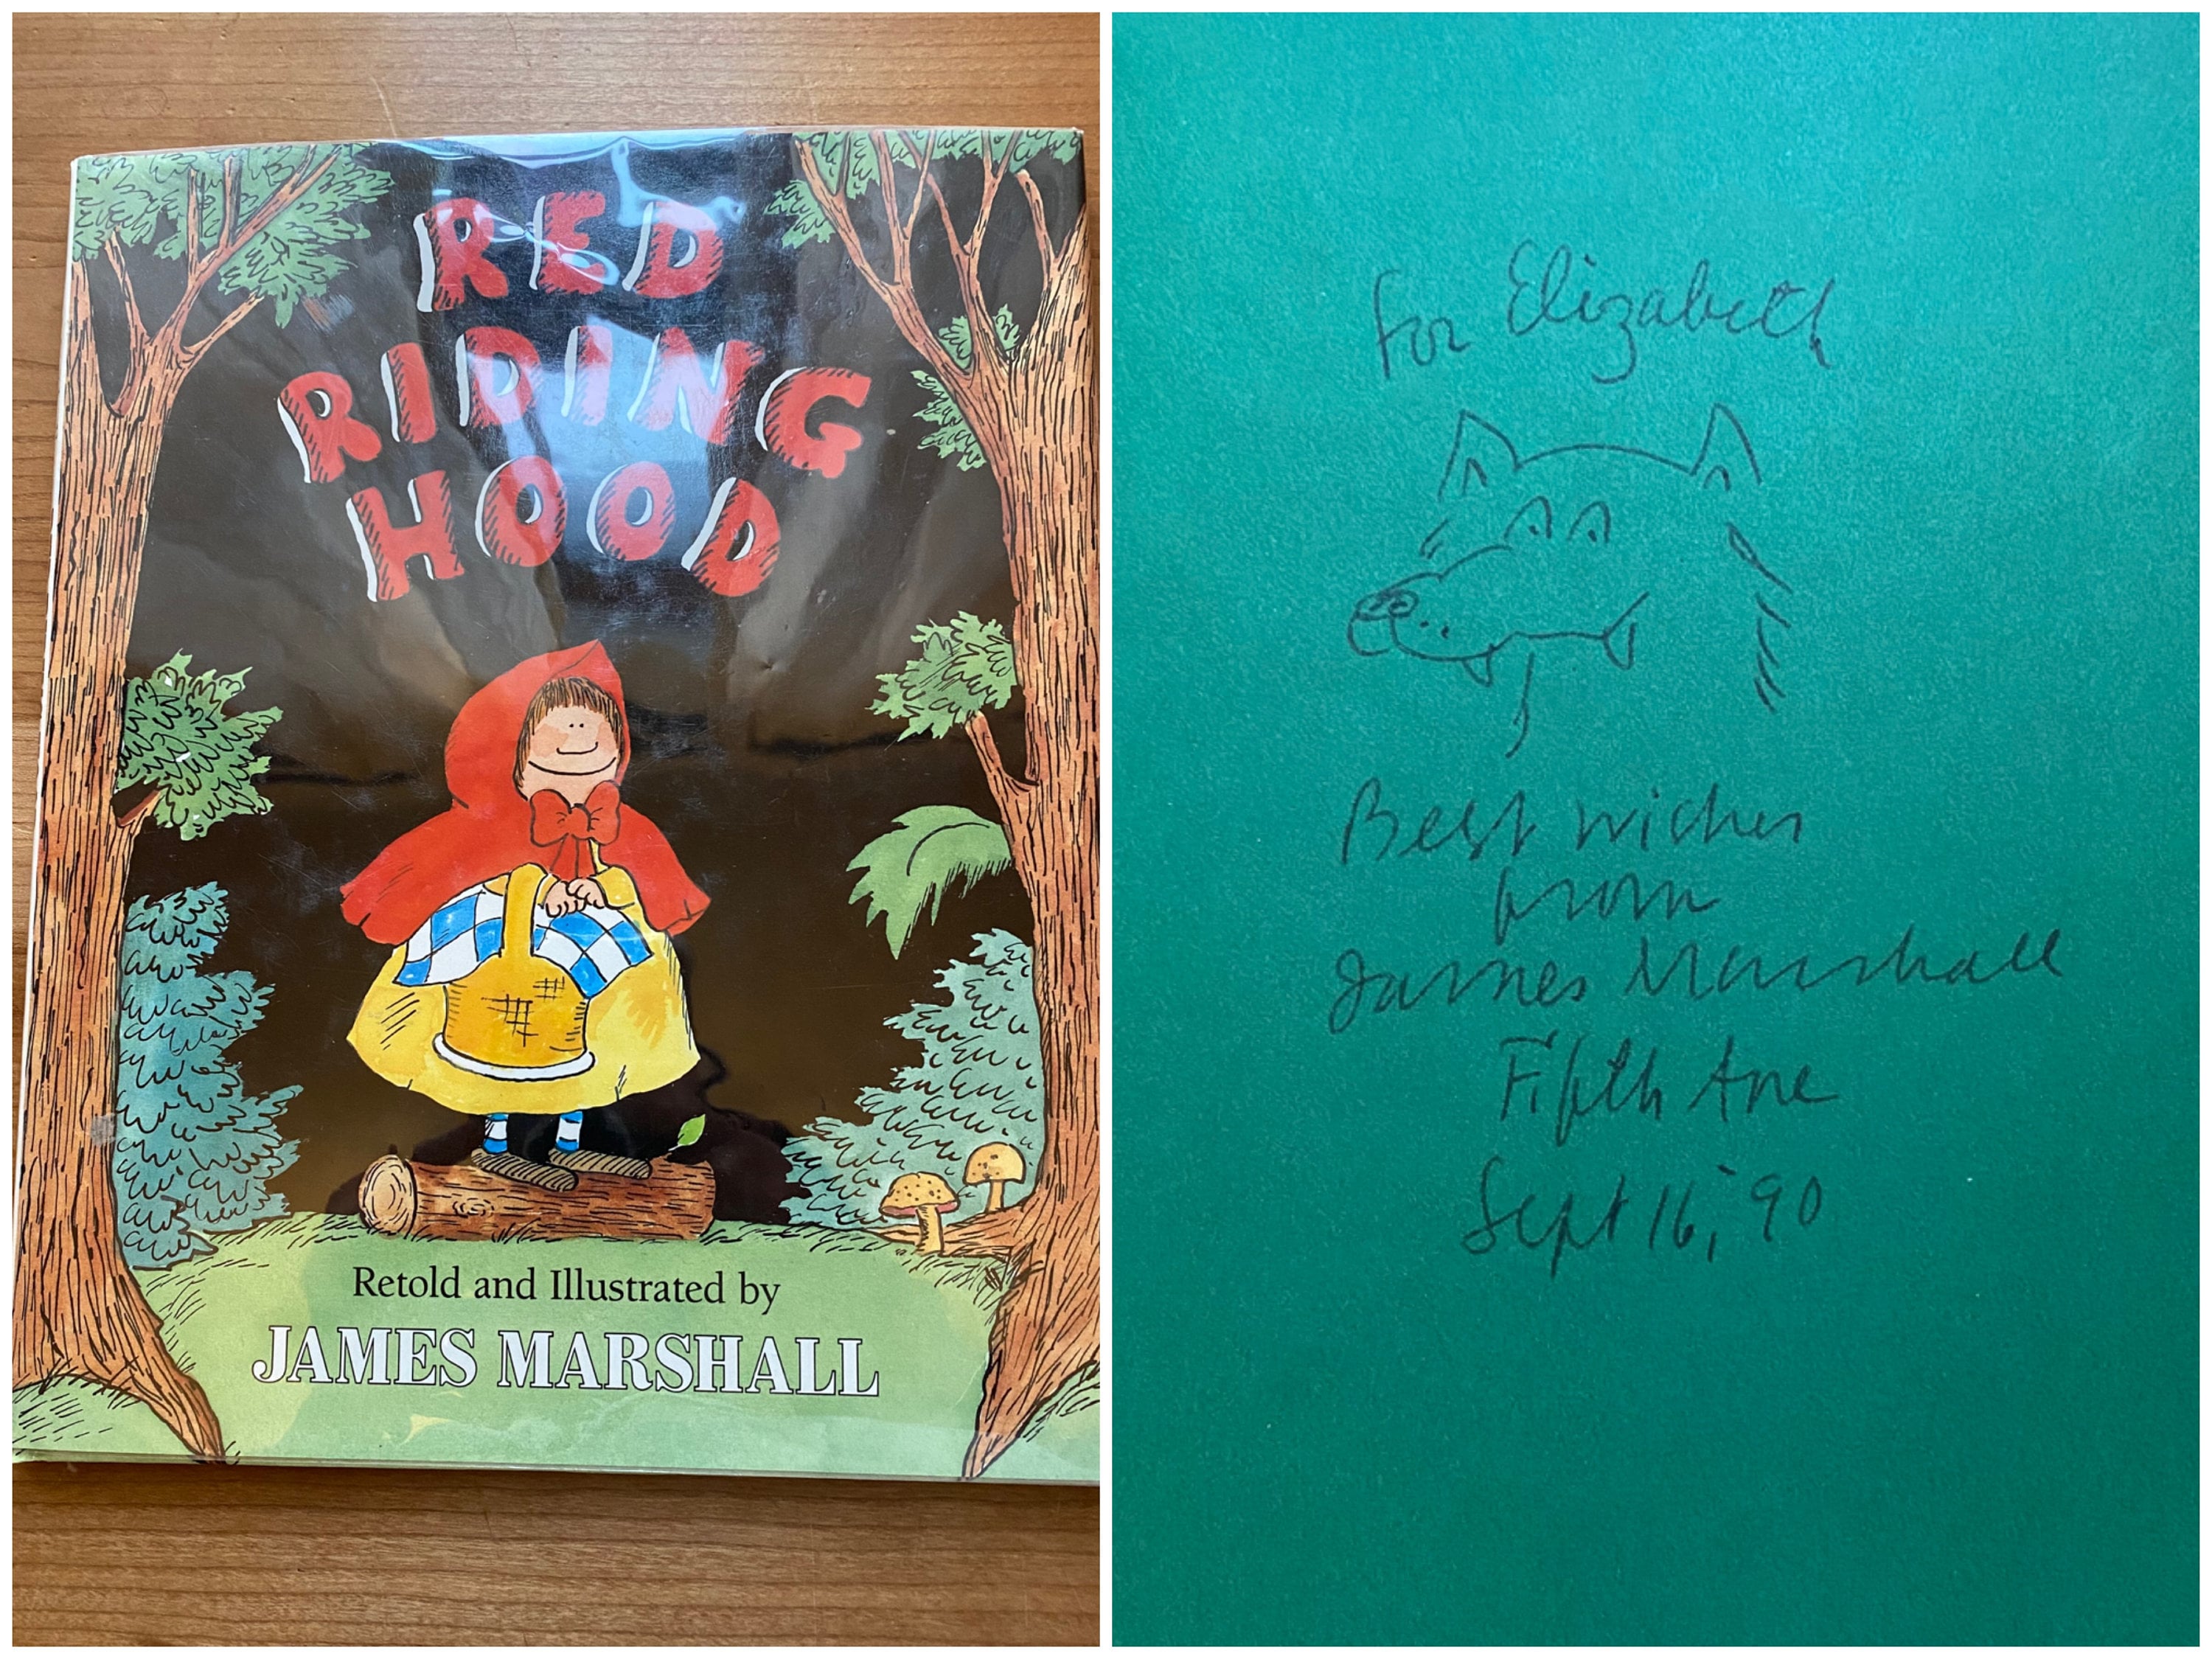 RED
RIDING
HOOD
Retold and Illustrated by
JAMES MARSHALL
For Elizabeth
Best wishes
from
James Marshall
Fifth Ave
Sept 16, '90